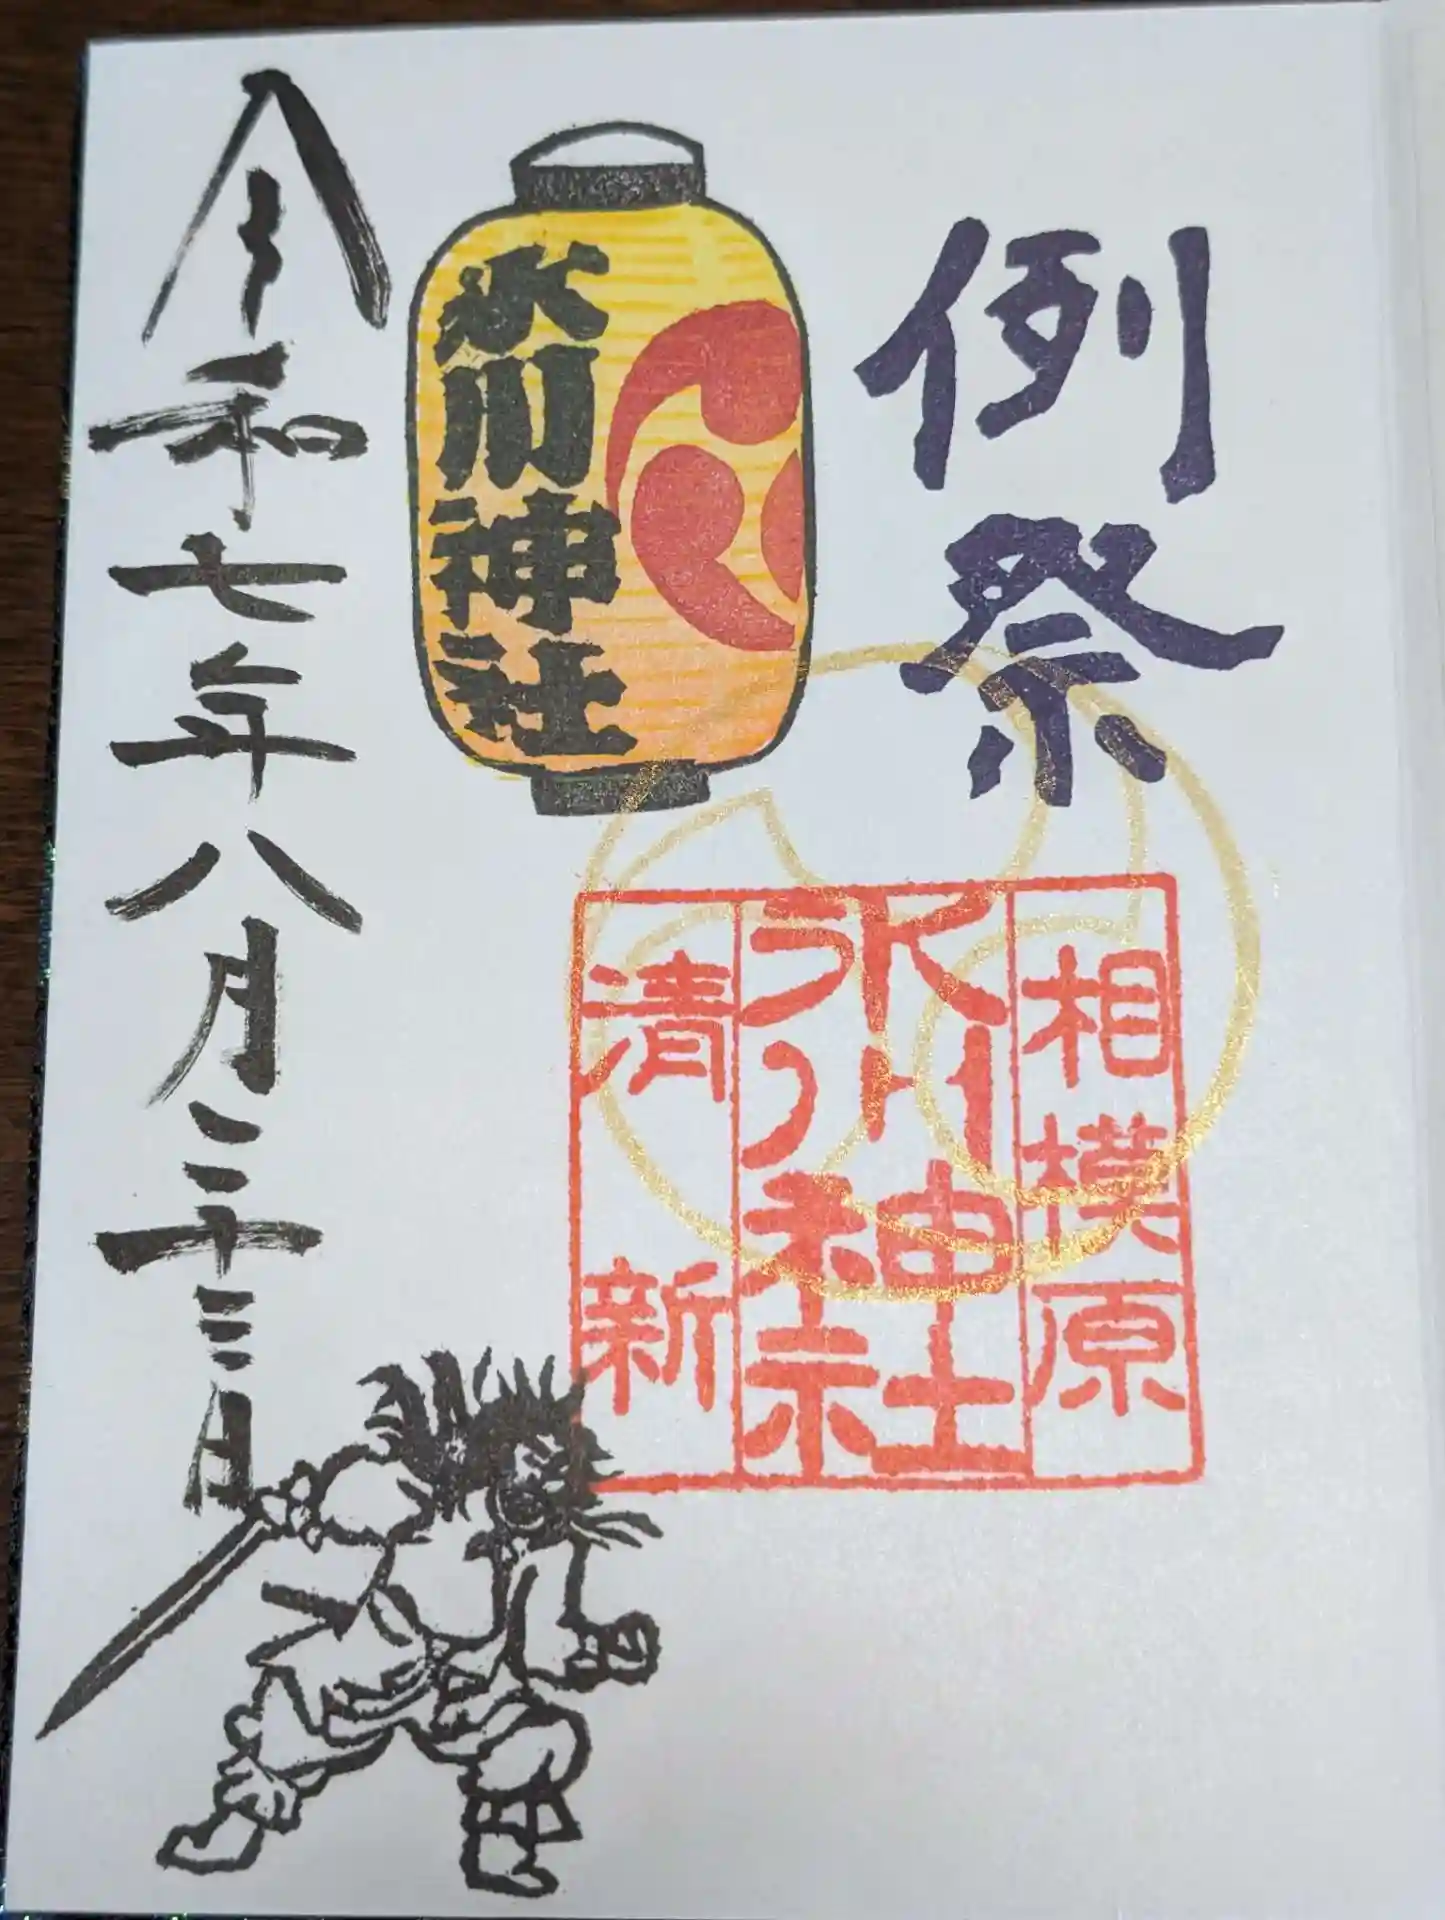 例祭
相模原
氷川神社
清新
氷川神社
令和七年八月二十三日